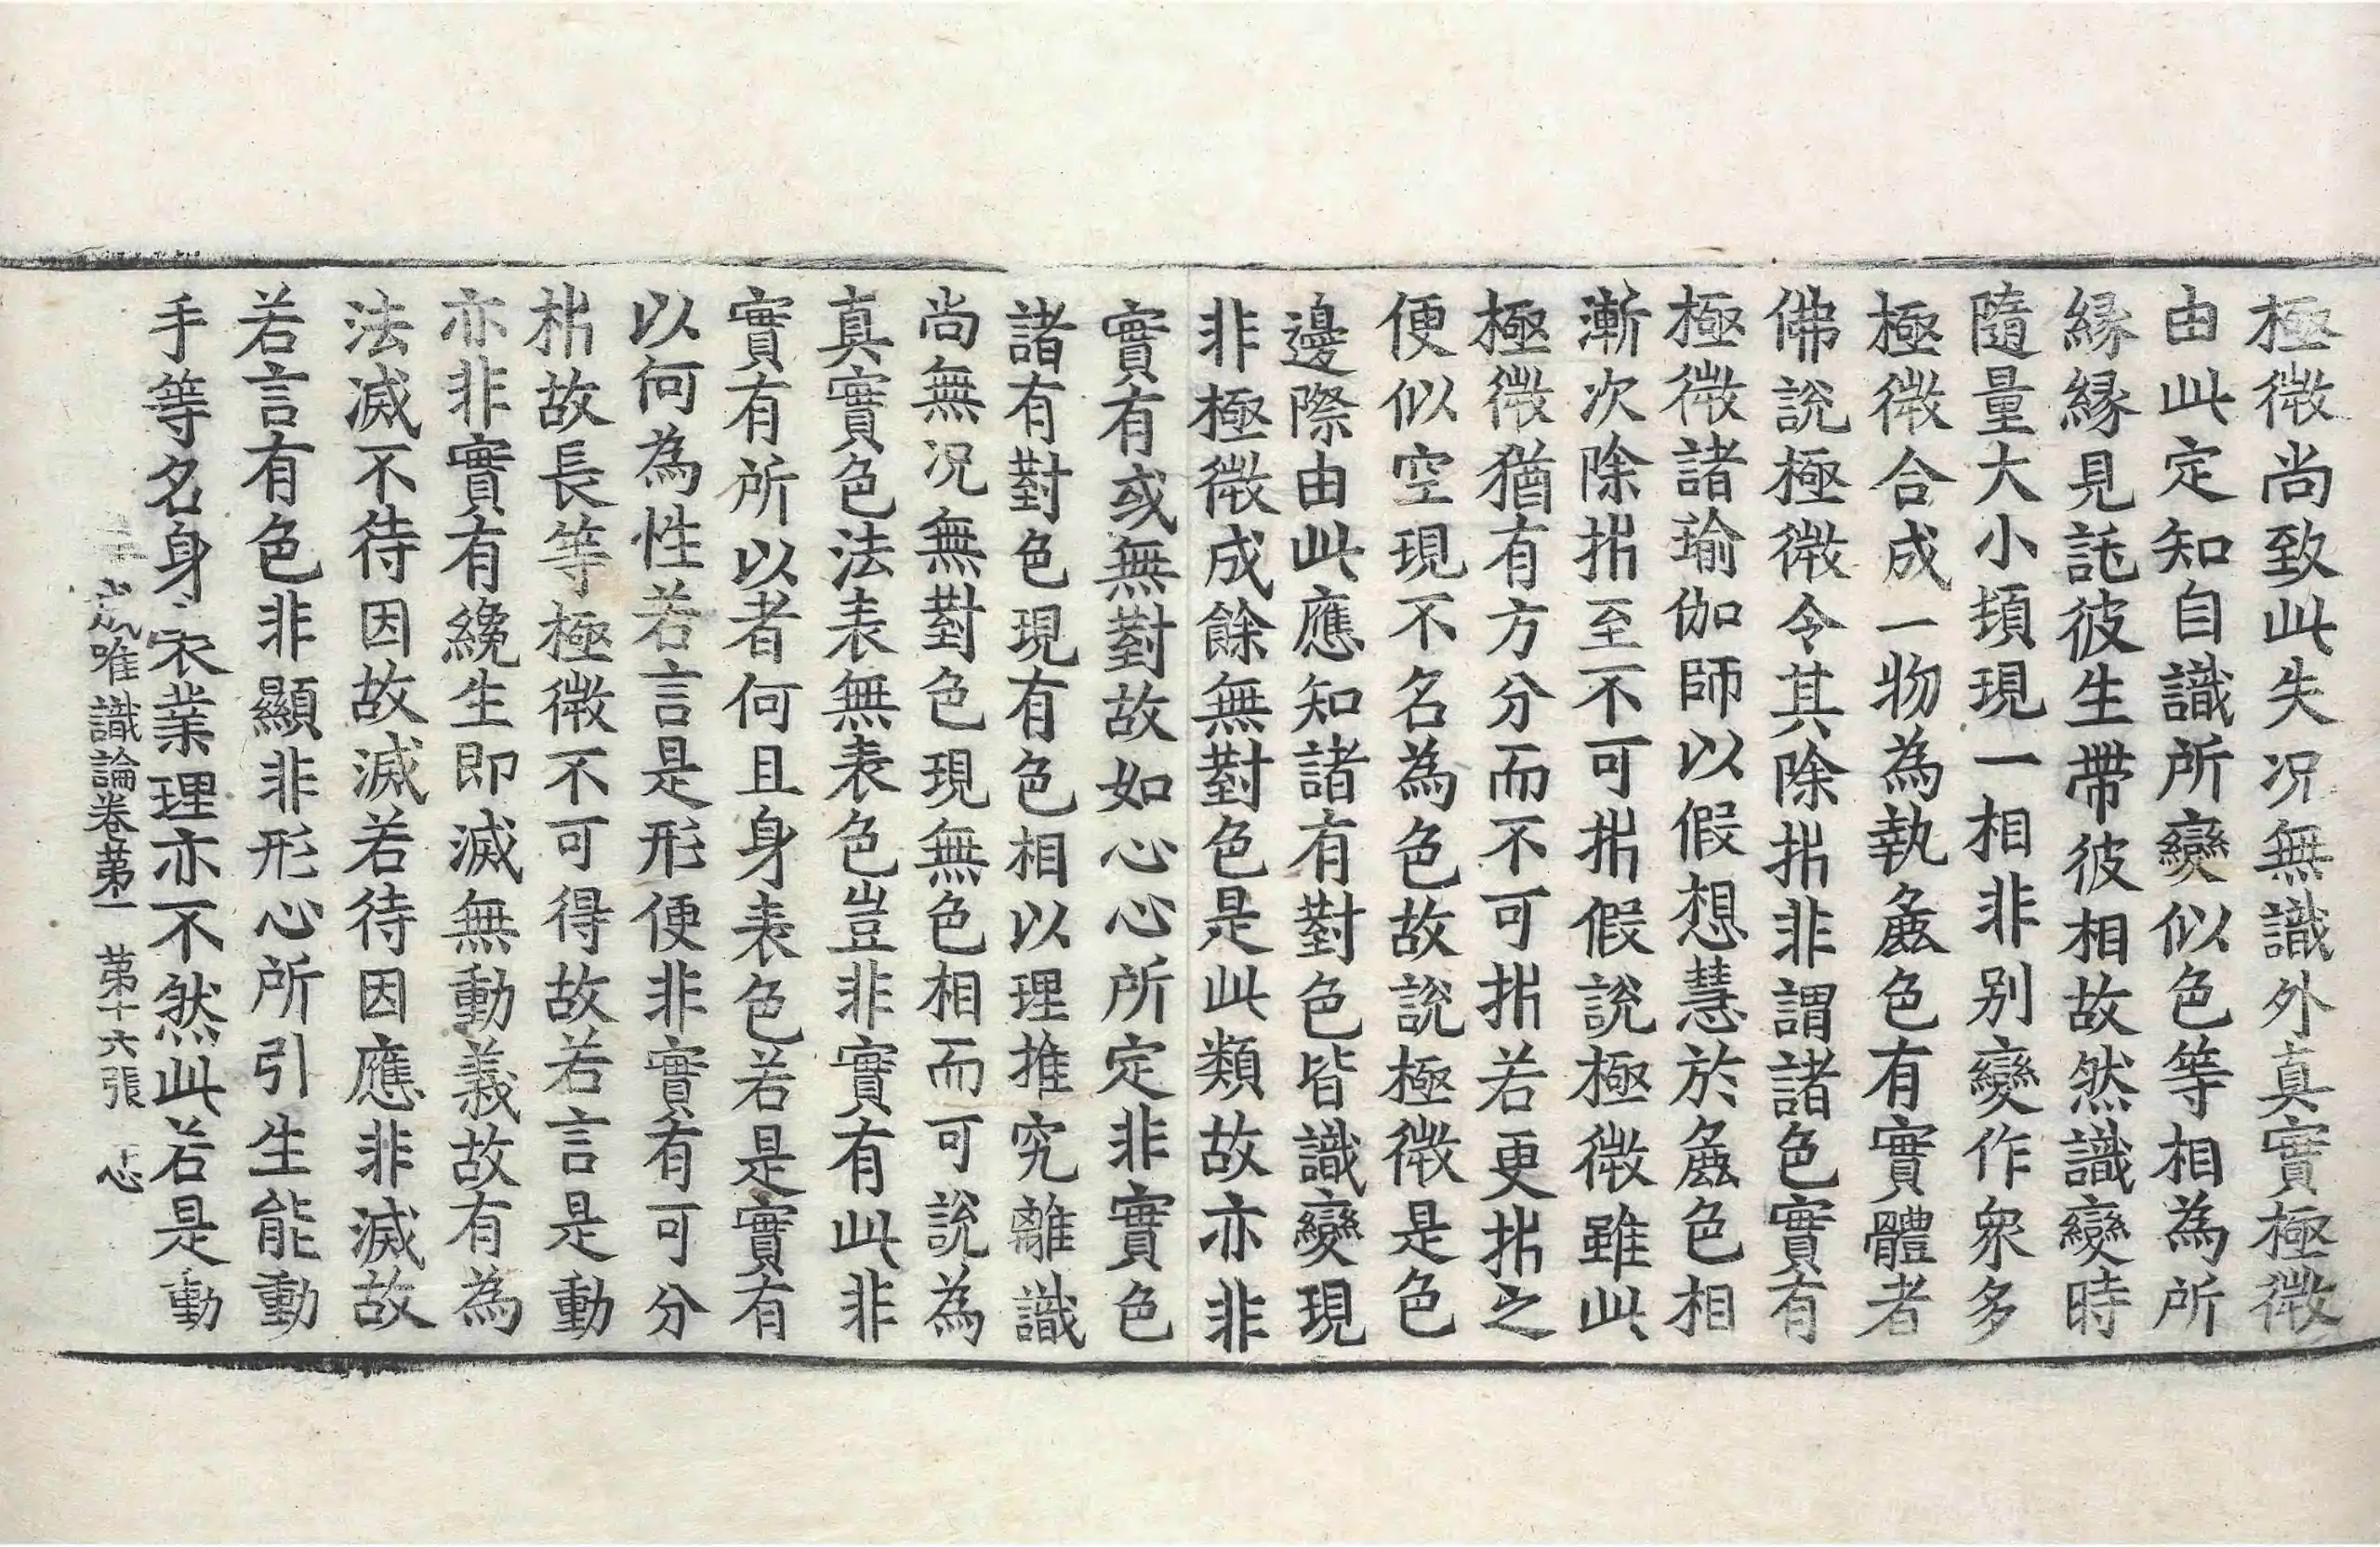 極微尚致此失况無識外真實極微
由此定知自識所變似色等相為所
緣緣見託彼生帶彼相故然識變時
隨量大小頓現一相非别變作衆多
極微合成一物為執麁色有實體者
佛說極微令其除析非謂諸色實有
極微諸瑜伽師以假想慧於麁色相
漸次除析至不可析假說極微雖此
極微猶有方分而不可析若更析之
便似空現不名為色故說極微是色
邊際由此應知諸有對色皆識變現
非極微成餘無對色是此類故亦非
實有或無對故如心心所定非實色
諸有對色現有色相以理推究離識
尚無况無對色現無色相而可說為
真實色法表無表色豈非實有此非
實有所以者何且身表色若是實有
以何為性若言是形便非實有可分
析故長等極微不可得故若言是動
亦非實有纔生即滅無動義故有為
法滅不待因故滅若待因應非滅故
若言有色非顯非形心所引生能動
手等名身表業理亦不然此若是動
成唯識論卷第一 第十六張